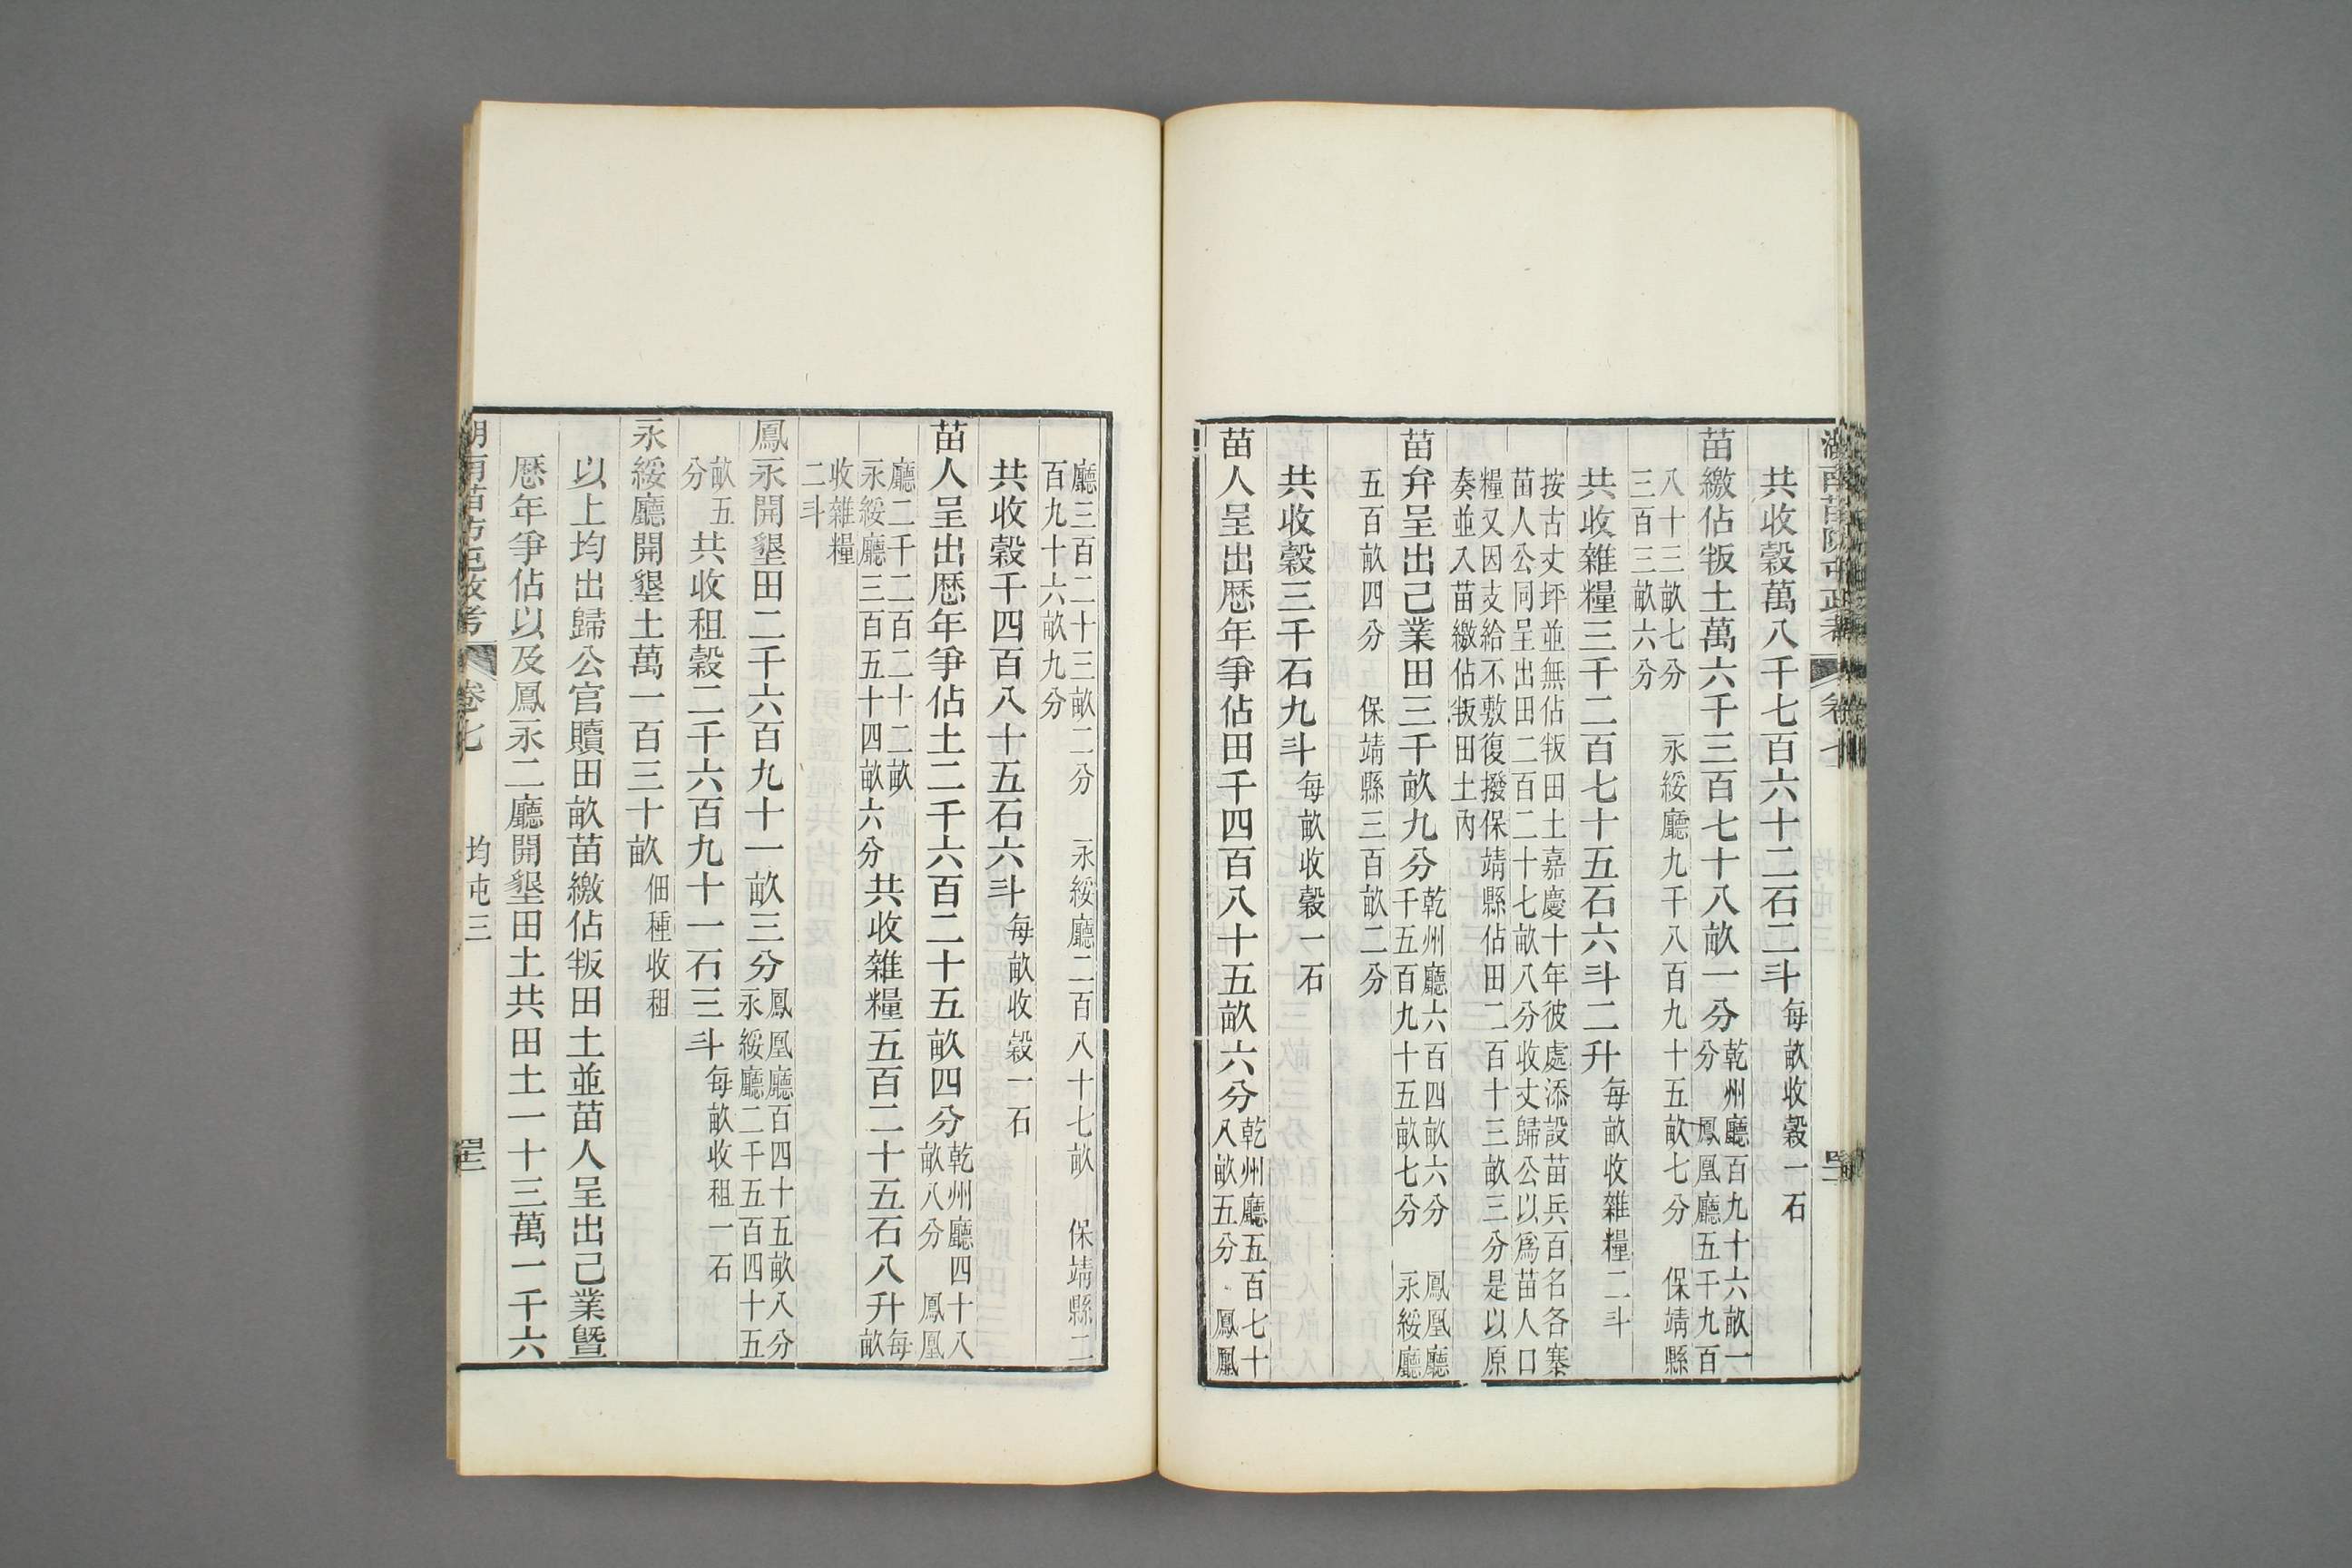 湖南苗防屯政考 卷七
共收穀萬八千七百六十二石二斗每畝收穀一石
苗繳佔叛土萬六千三百七十八畝一分乾州廳百九十六畝一
分 鳳凰廳五千九百
八十三畝七分 永綏廳九千八百九十五畝七分 保靖縣
三百三畝六分
共收雜糧三千二百七十五石六斗二升每畝收雜糧二斗
按古丈坪並無佔叛田土嘉慶十年彼處添設苗兵百名各寨
苗人公同呈出田二百二十七畝八分收丈歸公以爲苗人口
糧又因支給不敷復撥保靖縣佔田二百十三畝三分是以原
奏並入苗繳佔叛田土內
苗弁呈出己業田三千畝九分乾州廳六百四畝六分 鳳凰廳
千五百九十五畝七分 永綏廳
五百畝四分 保靖縣三百畝二分
共收穀三千石九斗每畝收穀一石
苗人呈出厯年爭佔田千四百八十五畝六分乾州廳五百七十
八畝五分 鳳凰
廳三百二十三畝二分 永綏廳二百八十七畝 保靖縣二
百九十六畝九分
共收穀千四百八十五石六斗每畝收穀一石
苗人呈出厯年爭佔土二千六百二十五畝四分乾州廳四十八
畝八分 鳳凰
廳二千二百二十二畝
永綏廳三百五十四畝六分共收雜糧五百二十五石八升每
畝
收雜糧
二斗
鳳永開墾田二千六百九十一畝三分鳳凰廳百四十五畝八分
永綏廳二千五百四十五
畝五
分共收租穀二千六百九十一石三斗每畝收租一石
永綏廳開墾土萬一百三十畝佃種收租
以上均出歸公官贖田畝苗繳佔叛田土並苗人呈出己業暨
厯年爭佔以及鳳永二廳開墾田土共田土一十三萬一千六
湖南苗防屯政考 卷七 均屯三